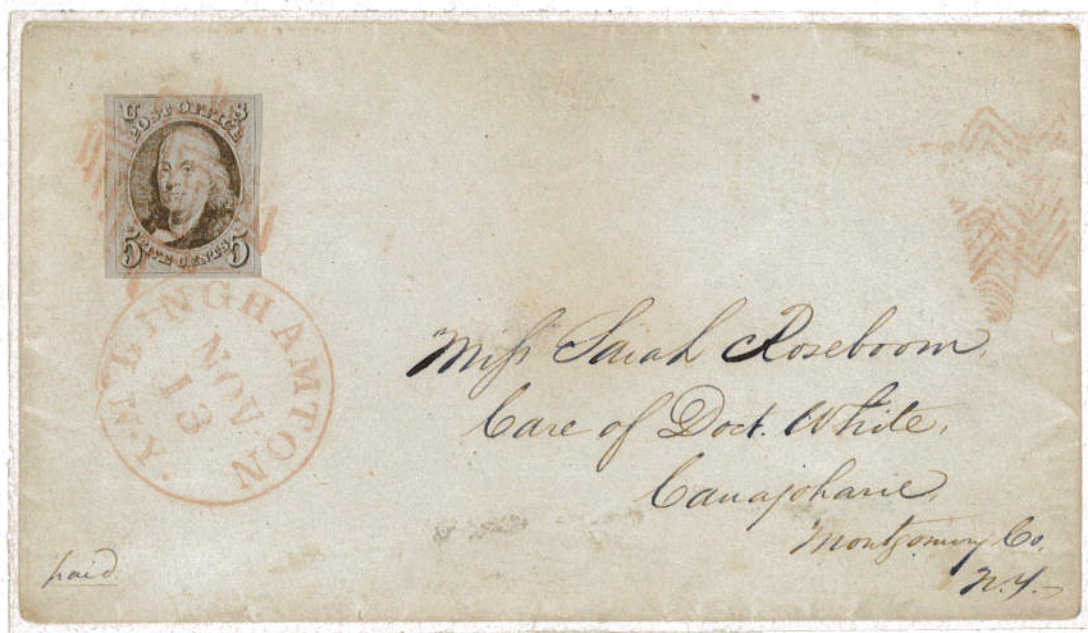 U S
POST OFFICE
5 FIVE CENTS 5
BINGHAMTON N.Y.
NOV
13
Miſs Sarah Roseboom,
Care of Doct. White,
Canajoharie,
Montgomery Co.
N.Y.
paid